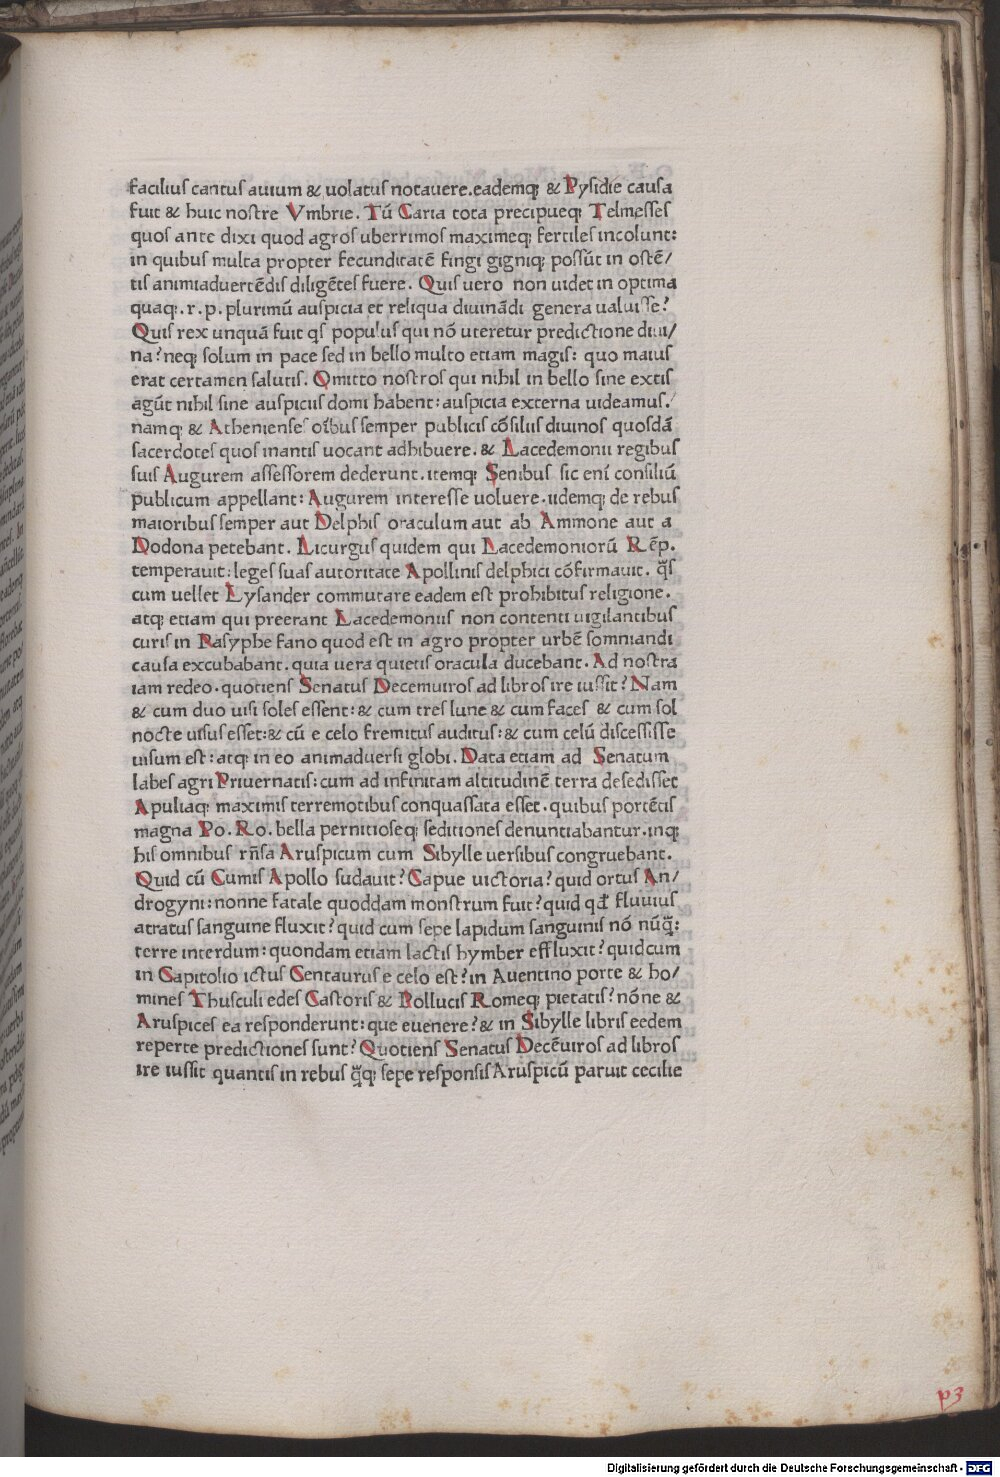 facilius cantus auium & uolatus notauere.eademq; & Pysidie causa
fuit & huic nostre Vmbrie. Tū Caria tota precipueq; Telmesses
quos ante dixi quod agros uberrimos maximeq; fertiles incolunt:
in quibus multa propter fecunditatē fingi gigniq; possūt in ostē/
tis animiaduertēdis diligētes fuere. Quis uero non uidet in optima
quaq;.r.p.plurimū auspicia et reliqua diuinādi genera ualuisse?
Quis rex unquā fuit qs populus qui nō uteretur predictione diui/
na?neq; solum in pace sed in bello multo etiam magis: quo maius
erat certamen salutis. Omitto nostros qui nihil in bello sine extis
agūt nihil sine auspiciis domi habent:auspicia externa uideamus.
namq; & Athenienses oībus semper publicis cōsiliis diuinos quosdā
sacerdotes quos mantis uocant adhibuere.& Lacedemonii regibus
suis Augurem assessorem dederunt.itemq; Senibus sic eni consiliū
publicum appellant: Augurem interesse uoluere.iidemq; de rebus
maioribus semper aut Delphis oraculum aut ab Ammone aut a
Dodona petebant. Licurgus quidem qui Lacedemoniorū Rēp.
temperauit:leges suas autoritate Apollinis delphici cōfirmauit. q̄s
cum uellet Lysander commutare eadem est prohibitus religione.
atq; etiam qui preerant Lacedemoniis non contenti uigilantibus
curis in Pasyphe fano quod est in agro propter urbē somniandi
causa excubabant.quia uera quietis oracula ducebant. Ad nostra
iam redeo.quotiens Senatus Decemuiros ad libros ire iussit? Nam
& cum duo uisi soles essent:& cum tres lune & cum faces & cum sol
nocte uisus esset:& cū e celo fremitus auditus:& cum celū discessisse
uisum est:atq; in eo animaduersi globi. Data etiam ad Senatum
labes agri Priuernatis:cum ad infinitam altitudinē terra desedisset
Apuliaq; maximis terremotibus conquassata esset.quibus portētis
magna Po.Ro.bella pernitioseq; seditiones denuntiabantur.inq;
his omnibus rn̄sa Aruspicum cum Sibylle uersibus congruebant.
Quid cū Cumis Apollo sudauit?Capue uictoria?quid ortus An/
drogyni:nonne fatale quoddam monstrum fuit?quid qd̄ fluuius
atratus sanguine fluxit?quid cum sepe lapidum sanguinis nō nūq̄:
terre interdum:quondam etiam lactis hymber effluxit?quid cum
in Capitolio ictus Centaurus e celo est?in Auentino porte & ho/
mines Thusculi edes Castoris & Pollucis Romeq; pietatis?nōne &
Aruspices ea responderunt:que euenere?& in Sibylle libris eedem
reperte predictiones sunt?Quotiens Senatus Decēuiros ad libros
ire iussit quantis in rebus q̄q; sepe responsis Aruspicū paruit cecilie
p3
Digitalisierung gefördert durch die Deutsche Forschungsgemeinschaft - DFG